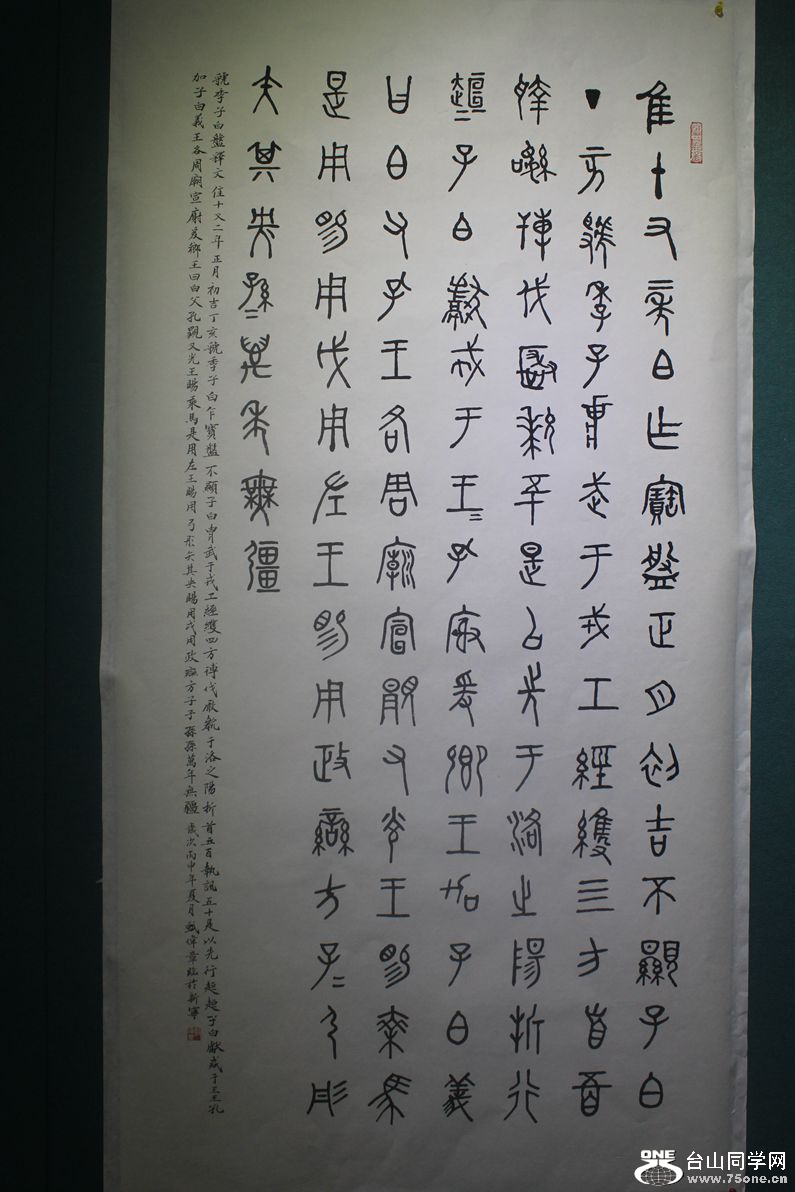 隹十又年白乍寶盤正月初吉不顯子白
丁亥虢季子武于戎工經四方首百
訊搏伐五十是以先于洛之陽折行
趄=子白獻戒于王=孔爰鄉王加子白義
曰白父孔王各周廟宣又光王賜乘馬
是用賜用戉用左王賜用政蠻方子=弓彤
矢其央孫=萬年無疆
虢季子白盤釋文 住十又二年正月初吉丁亥虢季子白乍寶盤不顯子白武于戎工經縷四方博伐厰執于洛之陽折首五百執訊五十是以先行趄趄子白獻戒于王王孔
加子白義王各周廟宣廚爰鄉王曰白父孔覭又光王賜乘馬是用左王賜用弓彤矢其央賜用戉用政蠻方子子孫孫萬年無疆 歲次丙申年夏月偉章臨於新寧
ONE 台山同学网
www.75one.cn